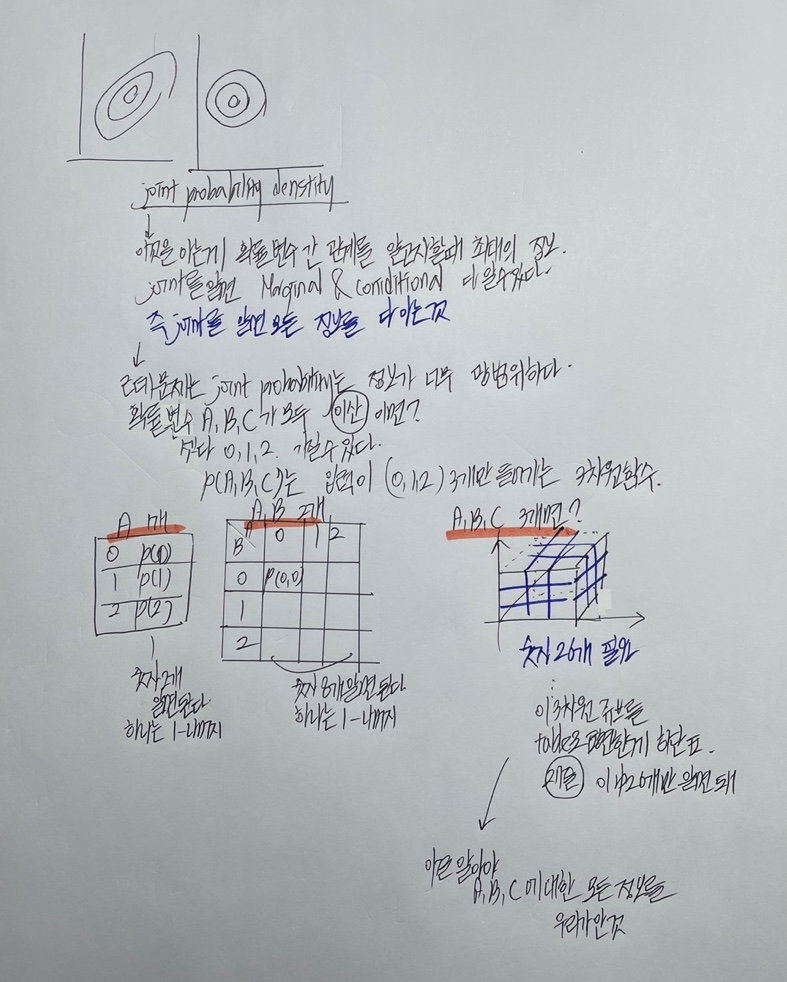 joint probability denstity
이것을 아는게 확률변수 간 관계를 알고자할때 최대의 정보.
joint를 알면 Marginal & conditional 다 알수있다.
즉 joint를 알면 모든 정보를 다 아는것
근데 문제는 joint probability는 정보가 너무 광범위하다.
확률변수 A, B, C가 모두 이산 이면?
각각 0, 1, 2. 가질수있다.
P(A, B, C)는 입력이 (0,1,2) 3개만 들어가는 3차원함수.
A 1개
0 p(0)
1 p(1)
2 p(2)
숫자2개
알면된다
하나는 1-나머지
A, B 2개
A 0 1 2
B
0 p(0,0)
1
2
숫자 8개 알면된다
하나는 1-나머지
A, B, C 3개면?
숫자 26개 필요
이 3차원 큐브를
table로 표현한게 하단표.
27개 이中26개만 알면 돼
이만큼 알아야
A, B, C에 대한 모든 정보를
우리가 안것